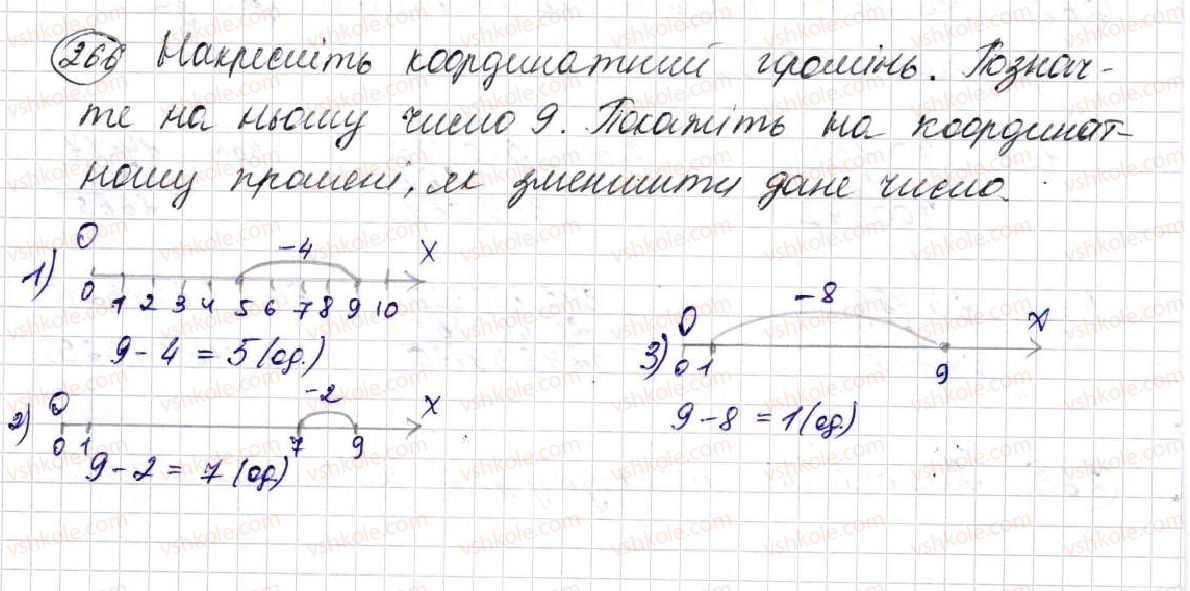 266 Накресліть координатний промінь. Познач-
те на ньому число 9. Покажіть на координат-
ному промені, як зменшити дане число.
1) O -4 x
0 1 2 3 4 5 6 7 8 9 10
9 - 4 = 5 (од.)
2) O -2 x
0 1 7 9
9 - 2 = 7 (од)
3) O -8 x
0 1 9
9 - 8 = 1 (од.)
vshkole.com